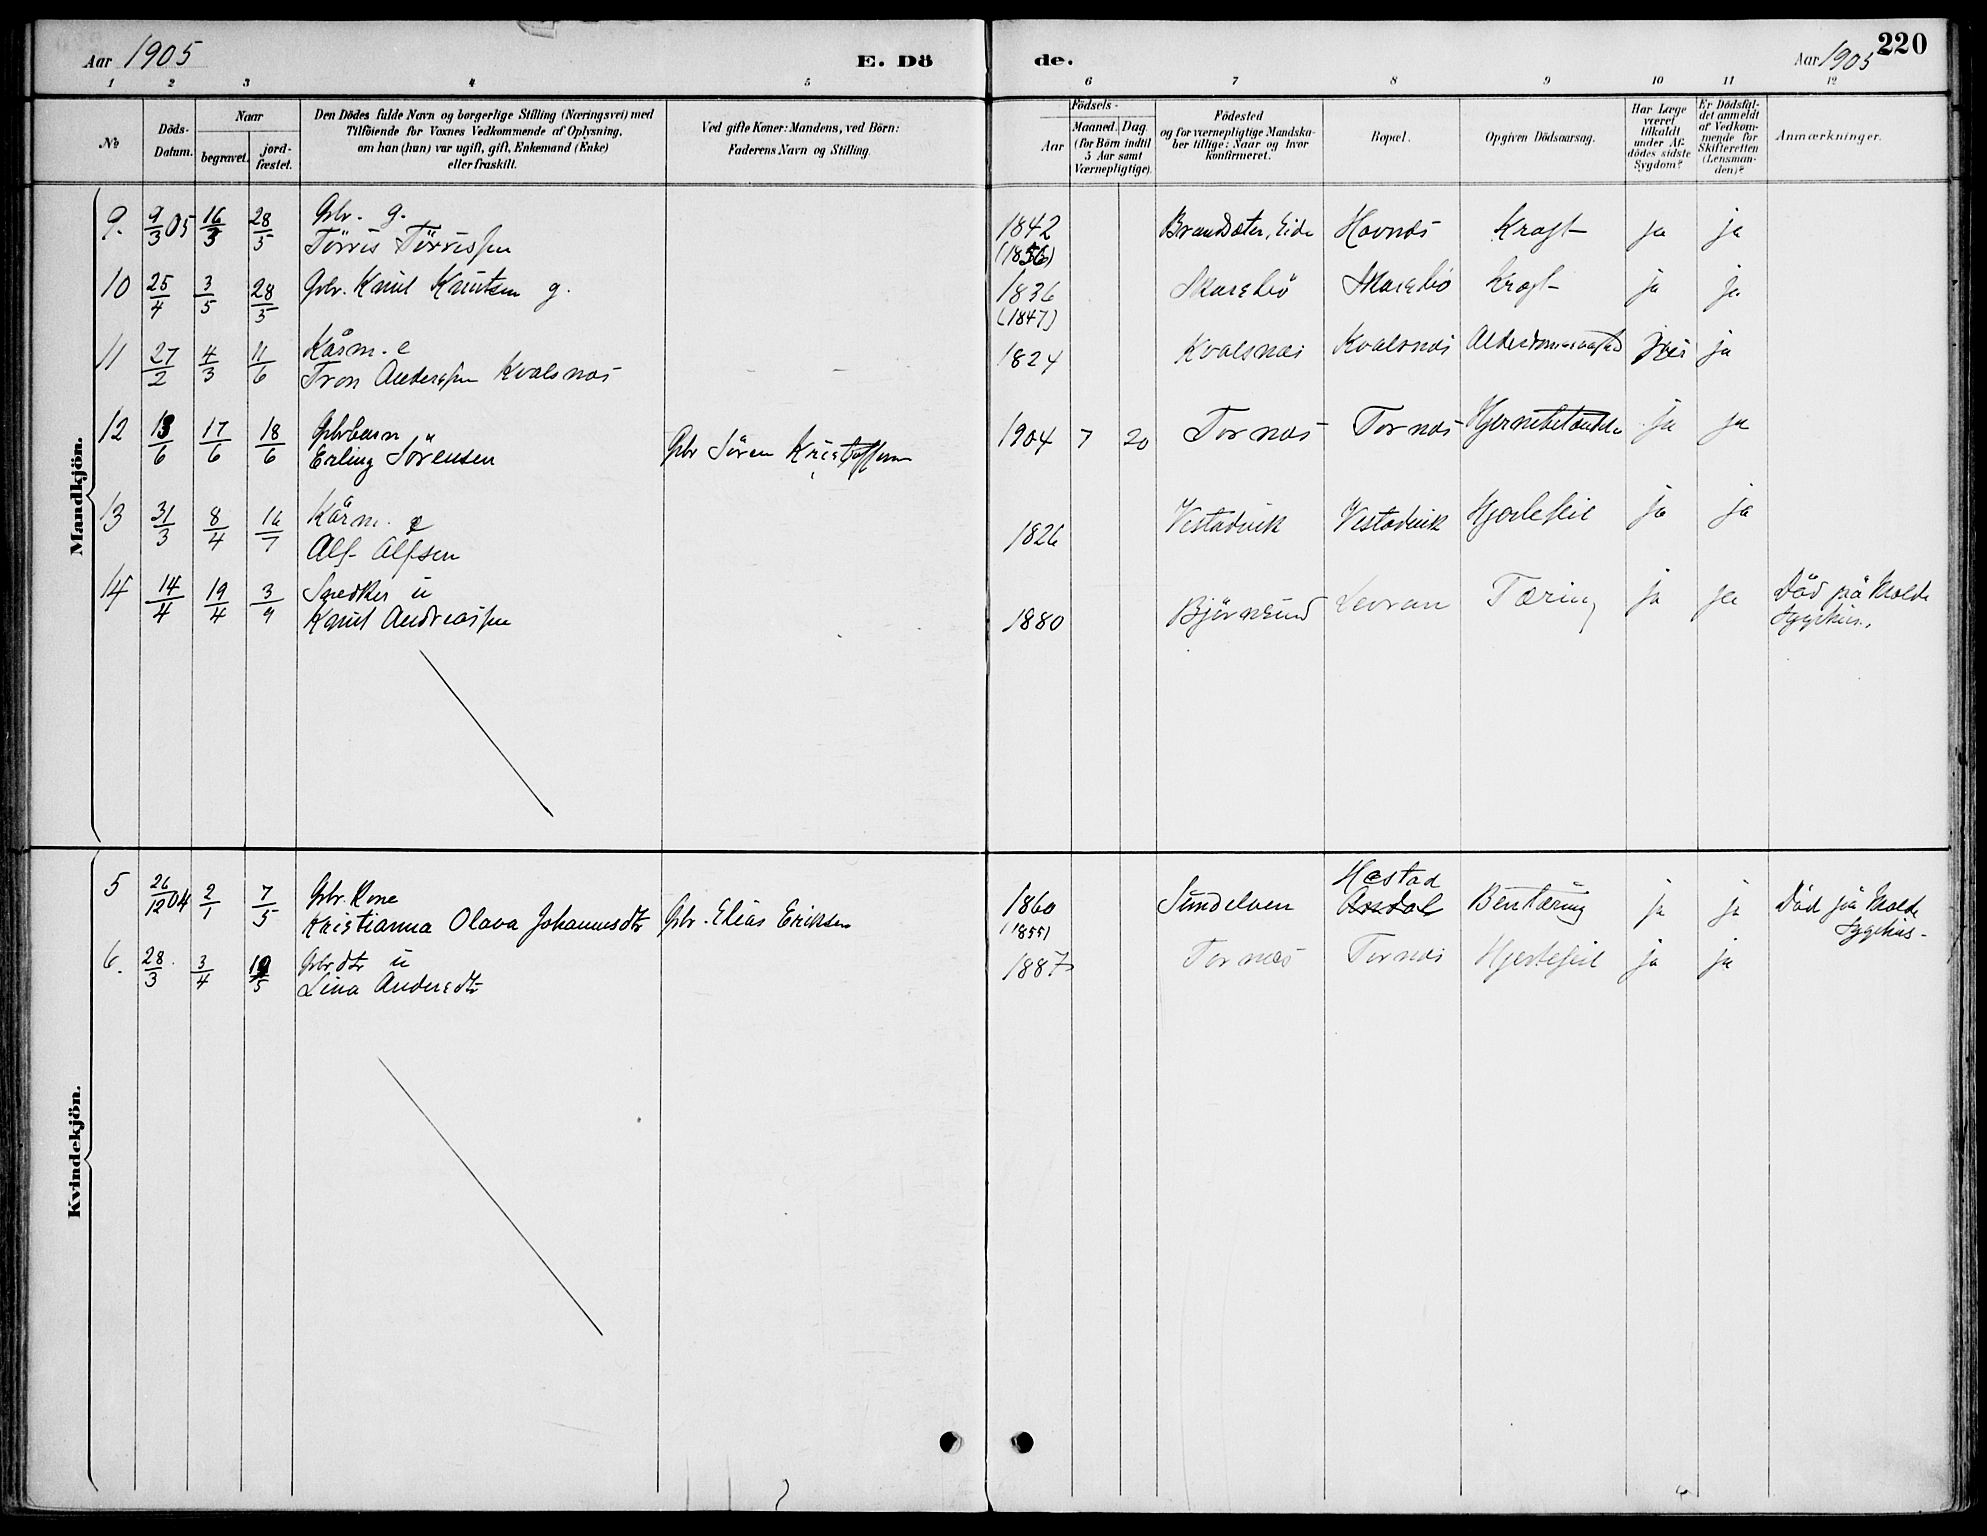 Aar 1905
E. Dö
de.
Aar 1905
220
1 2 3 4 5 6 7 8 9 10 11 12
No
Döds-
Datum.
Naar
begravet.
jord-
fæstet.
Den Dödes fulde Navn og borgerlige Stilling (Næringsvei) med
Tilföiende for Voxnes Vedkommende af Oplysning,
om han (hun) var ugift, gift, Enkemand (Enke)
eller fraskilt.
Ved gifte Koner: Mandens, ved Börn:
Faderens Navn og Stilling.
Födsels-
Aar
Maaned. Dag.
(for Börn indtil
5 Aar samt
Værnepligtige).
Födested
og for værnepligtige Mandska-
ber tillige: Naar og hvor
konfirmeret.
Bopæl.
Opgiven Dödsaarsag.
Har Læge
været
tilkaldt
under Af-
dödes sidste
Sygdom?
Er Dödsfal-
det anmeldt
af Vedkom-
mende for
Skifteretten
(Lensman-
den)?
Anmærkninger.
Mandkjön.
9. 9/3 05 16/3 28/5 Gbr. g.
Törris Törrissen
1842
(1856)
Brandsæter, Eide Havnes Kræft ja ja
10 25/4 3/5 28/5 Gbr. Knut Knutsen g. 1836
(1847)
Skarsbö Skarsbö Kræft ja ja
11 27/2 4/3 11/6 Kårm. e
Tron Anderssen Kvalsnæs
1824 Kvalsnæs Kvalsnæs ja
12 13/6 17/6 18/6 Gbrbarn
Erling Sörensen
Gbr Sören Kristoffersen
1904 7 20 Tornæs Tornæs Hjernebetændelse ja ja
13 31/3 8/4 16/7 Kårm. e
Alf Alfsen
1826 Vestadvik Vestadvik Hjertefeil ja ja
14 14/4 19/4 3/9 Snedker u
Knut Andreassen
1880 Björnsund Tæring ja ja Död på Molde
Sygehus.
Kvindekjön.
5 26/12 04 2/1 7/5 Gbr. Kone
Kristianna Olava Johannesdtr Gbr. Elias Eriksen
1860
(1855)
Sundelven Hæstad
Bentæring ja ja Död på Molde
Sygehus.
6. 28/3 3/4 19/5 Gbr.dtr u
Lina Andersdtr
1887 Tornæs Tornæs Hjertefeil ja ja